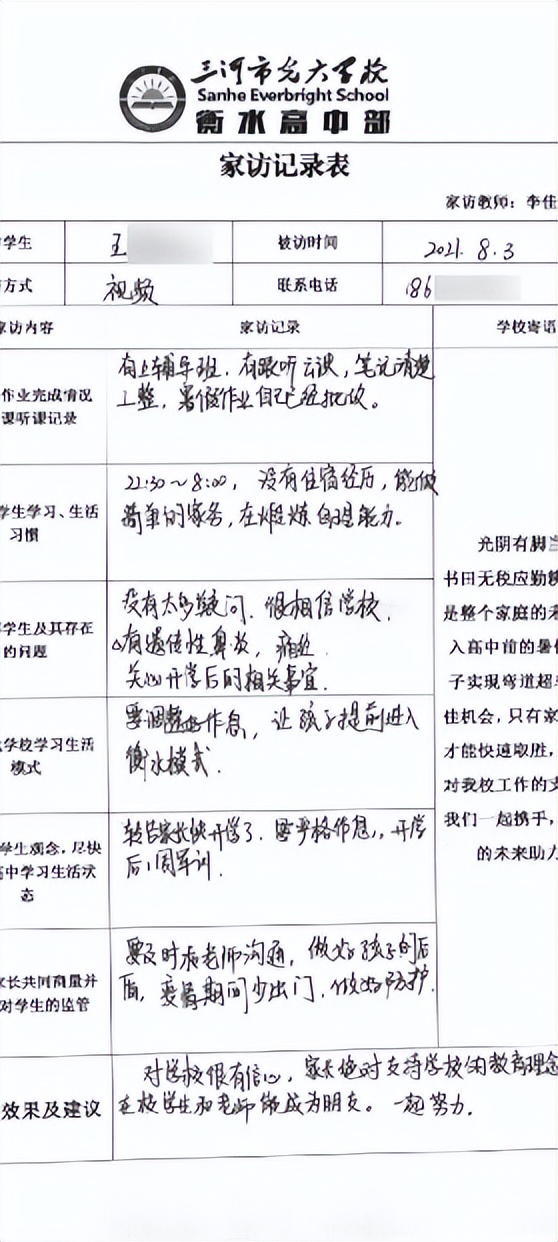 三河市光大学校
Sanhe Everbright School
衡水高中部
家访记录表
家访教师：李佳
学生 王 被访时间 2021.8.3
方式 视频 联系电话 186
家访内容 家访记录 学校寄语
作业完成情况
课听课记录
有上辅导班，有跟听云课，笔记清楚
工整，暑假作业自己已经批改。
学生学习、生活
习惯
22:30～8:00，没有住宿经历，能做
简单的家务，在锻炼自理能力。
学生及其存在
的问题
没有太多疑问，很相信学校，
有遗传性鼻炎，
关心开学后的相关事宜.
学校学习生活
模式
要调整好作息，让孩子提前进入
衡水模式.
学生观念，尽快
高中学习生活状
态
转告家长快开学了，要严格作息，开学
后1周军训.
家长共同商量并
对学生的监管
要及时和老师沟通，做好孩子的后
盾，疫情期间少出门，做好防护.
光阴有脚
书田无税应勤
是整个家庭的
入高中前的暑
子实现弯道超
佳机会，只有家
才能快速取胜，
对我校工作的支
我们一起携手，
的未来助力
效果及建议
对学校很有信心，家长绝对支持学校的教育理念
在校学生和老师能成为朋友。一起努力.